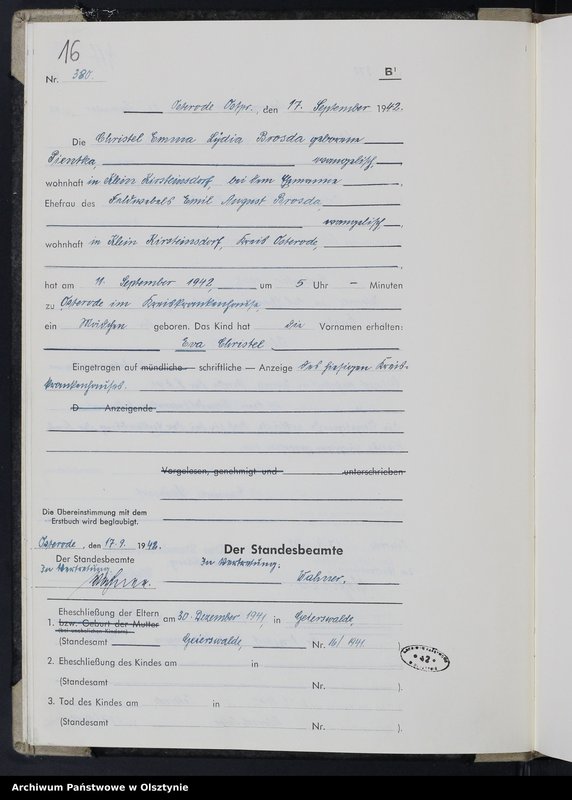 16
Nr. 380.
B¹
Osterode Ostpr., den 17. September 1942.
Die Christel Emma Lydia Brosda geborene
Pientka, evangelisch,
wohnhaft in Klein Kirsteinsdorf, bei dem Ehemanne,
Ehefrau des Feldwebels Emil August Brosda,
evangelisch,
wohnhaft in Klein Kirsteinsdorf, Kreis Osterode,
hat am 11. September 1942, um 5 Uhr – Minuten
zu Osterode im Kreiskrankenhause,
ein Mädchen geboren. Das Kind hat die Vornamen erhalten:
Eva Christel.
Eingetragen auf mündliche – schriftliche – Anzeige des hiesigen Kreis-
krankenhauses.
D Anzeigende
Vorgelesen, genehmigt und unterschrieben
Die Übereinstimmung mit dem
Erstbuch wird beglaubigt.
Osterode, den 17.9. 1942.
Der Standesbeamte
Der Standesbeamte
In Vertretung:
In Vertretung
1. Eheschließung der Eltern am 30. Dezember 1941 in Geierswalde,
bzw. Geburt der Mutter
(bei unehelichen Kindern)
(Standesamt Geierswalde, Nr. 16/1941 )
2. Eheschließung des Kindes am in
(Standesamt Nr. ).
3. Tod des Kindes am in
(Standesamt Nr. ).
42
Archiwum Państwowe w Olsztynie